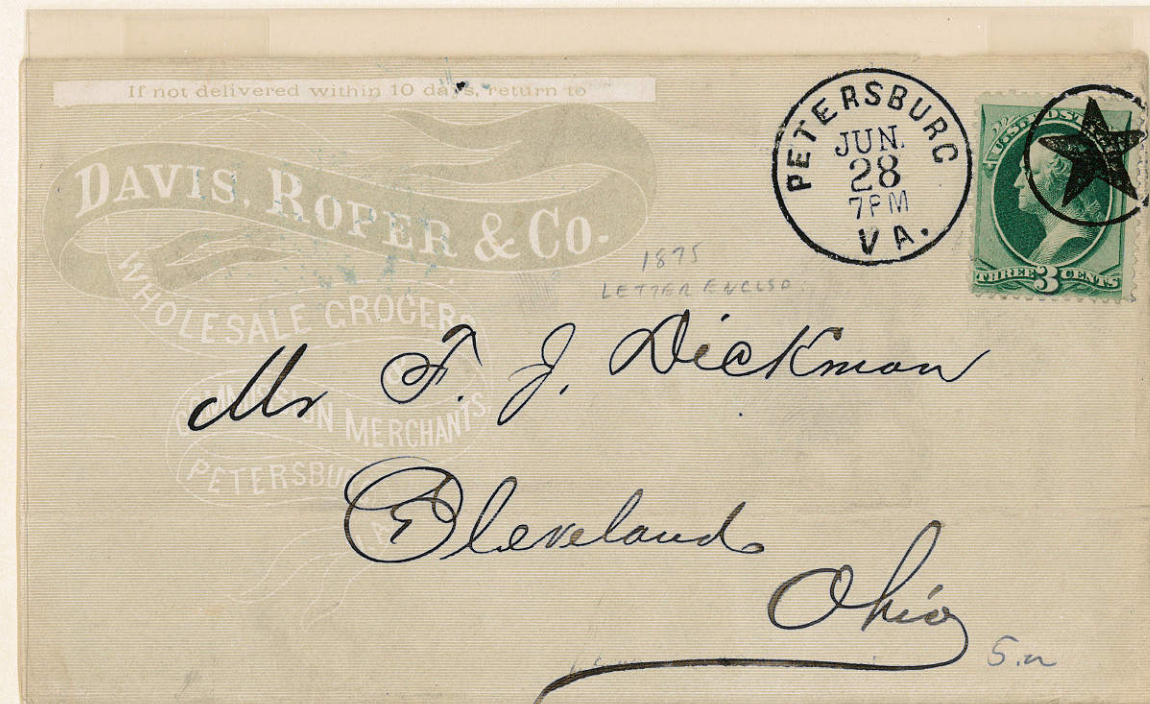 If not delivered within 10 days, return to
DAVIS, ROPER & CO.
WHOLESALE GROCERS
&
COMMISSION MERCHANTS
PETERSBURG
VA.
PETERSBURG
JUN.
28
7PM
VA.
U.S. POSTAGE
THREE 3 CENTS
1875
LETTER ENCLSD.
Mr F. J. Dickman
Cleveland
Ohio